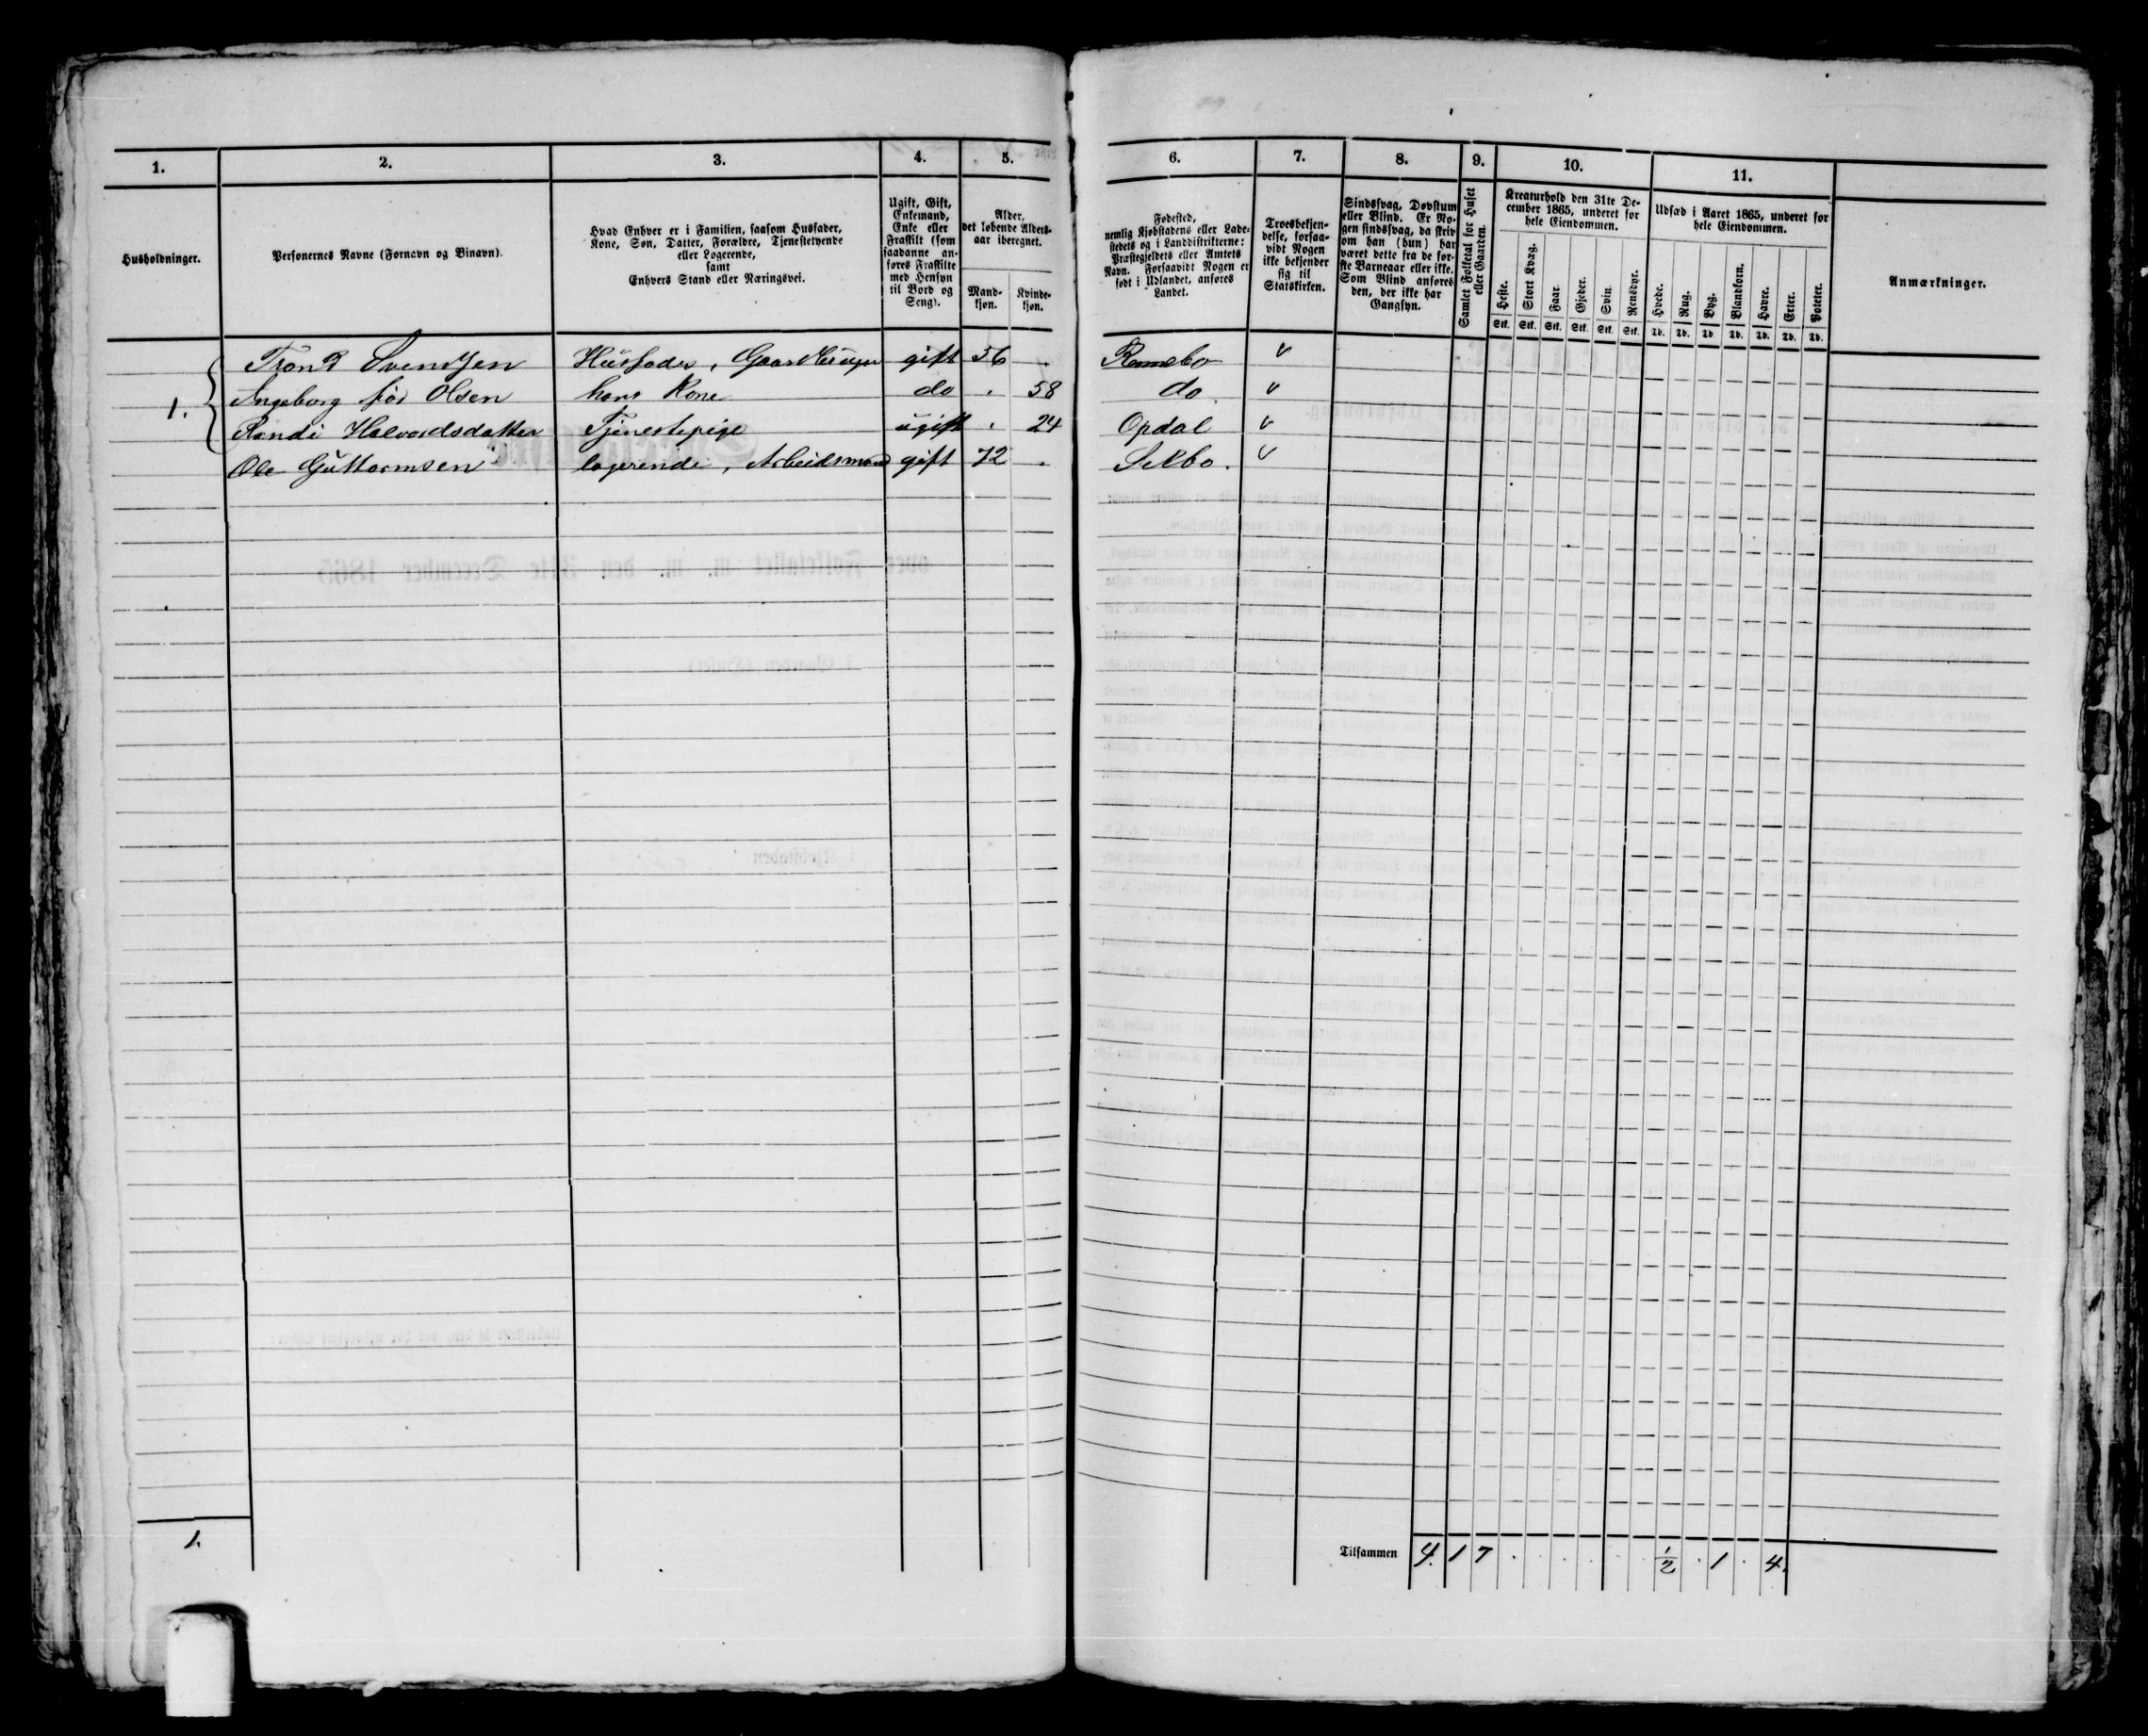 1. 2. 3. 4. 5. 6. 7. 8. 9. 10. 11.
Husholdninger.
Personernes Navne (Fornavn og Binavn).
Hvad Enhver er i Familien, saasom Husfader,
Kone, Søn, Datter, Forældre, Tjenestetyende
eller Logerende,
samt
Enhvers Stand eller Næringsvei.
Ugift, Gift,
Enkemand,
Enke eller
Fraskilt (som
saadanne an-
føres Fraskilte
med Hensyn
til Bord og
Seng).
Alder,
det løbende Alders-
aar iberegnet.
Mand-
kjøn.
Kvinde-
kjøn.
Fødested,
nemlig Kjøbstadens eller Lade-
stedets og i Landdistrikterne:
Præstegjeldets eller Amtets
Navn. Forsaavidt Nogen er
født i Udlandet, anføres
Landet.
Troesbekjen-
delse, forsaa-
vidt Nogen
ikke bekjender
sig til
Statskirken.
Sindssvag, Døvstum
eller Blind. Er No-
gen sindssvag, da skriv
om han (hun) har
været dette fra de før-
ste Barneaar eller ikke.
Som Blind anføres
den, der ikke har
Gangsyn.
Samlet Folketal for Huset
eller Gaarden.
Kreaturhold den 31te De-
cember 1865, underet for
hele Eiendommen.
Heste. Stort Kvæg. Faar. Gjeder. Svin. Rensdyr.
Stk. Stk. Stk. Stk. Stk. Stk.
Udsæd i Aaret 1865, underet for
hele Eiendommen.
Hvede. Rug. Byg. Blandkorn. Havre. Erter. Poteter.
Td. Td. Td. Td. Td. Td. Td.
Anmærkninger.
Trond Svendsen Husfader, Gaardbruger gift 56 . Rennebo v
1. Ingeborg fød Olsen hans Kone do . 58 do. v
Randi Halvordsdatter Tjenestepige ugift . 24 Opdal v
Ole Guttormsen logerende, Arbeidsmand gift 72 . Selbo. v
1.
Tilsammen 4. 1 7 . . . . . . 1/2 . 1 . 4.